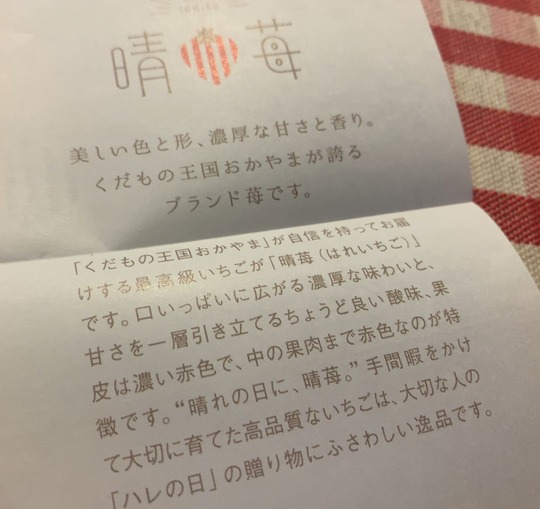 晴苺
美しい色と形、濃厚な甘さと香り。
くだもの王国おかやまが誇る
ブランド苺です。
「くだもの王国おかやま」が自信を持ってお届
けする最高級いちごが「晴苺（はれいちご）」
です。口いっぱいに広がる濃厚な味わいと、
甘さを一層引き立てるちょうど良い酸味、果
皮は濃い赤色で、中の果肉まで赤色なのが特
徴です。“晴れの日に、晴苺。”手間暇をかけ
て大切に育てた高品質ないちごは、大切な人の
「ハレの日」の贈り物にふさわしい逸品です。